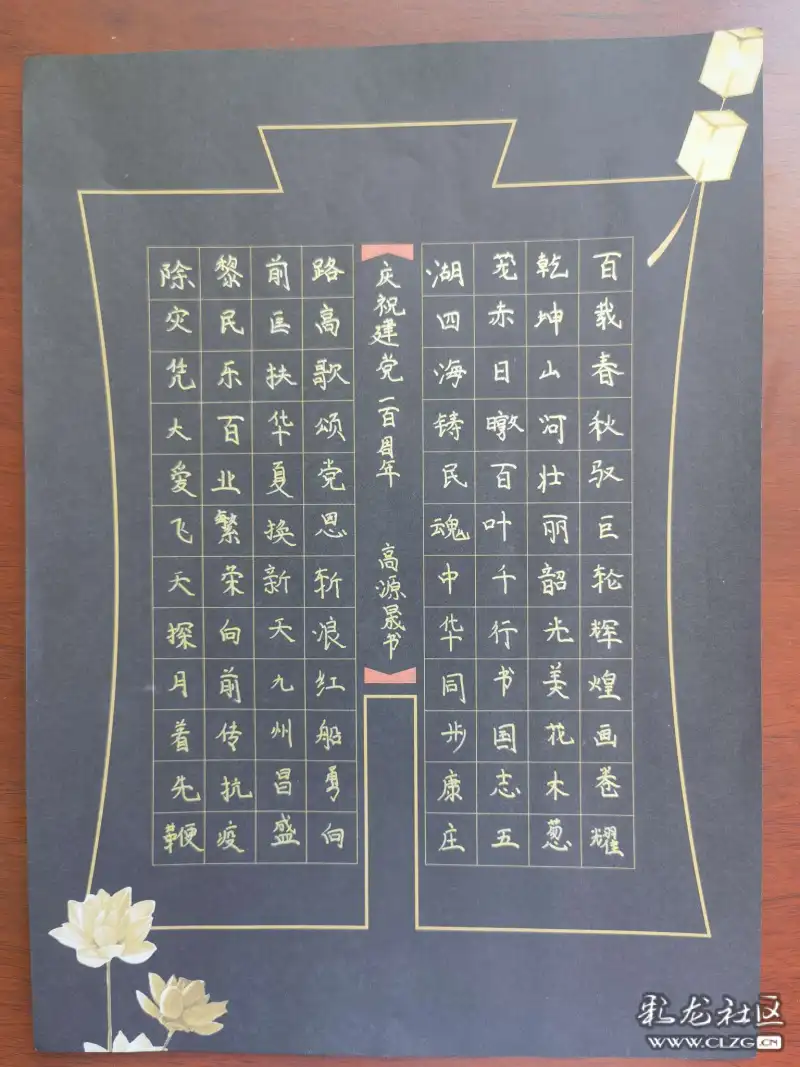 百载春秋驭巨轮辉煌画卷耀
乾坤山河壮丽韶光美花木葱
茏赤日暾百叶千行书国志五
湖四海铸民魂中华同步康庄
庆祝建党一百周年 高源晟书
路高歌颂党恩斩浪红船勇向
前匡扶华夏换新天九州昌盛
黎民乐百业繁荣向前传抗疫
除灾凭大爱飞天探月着先鞭
彩龙社区
WWW.CLZG.CN